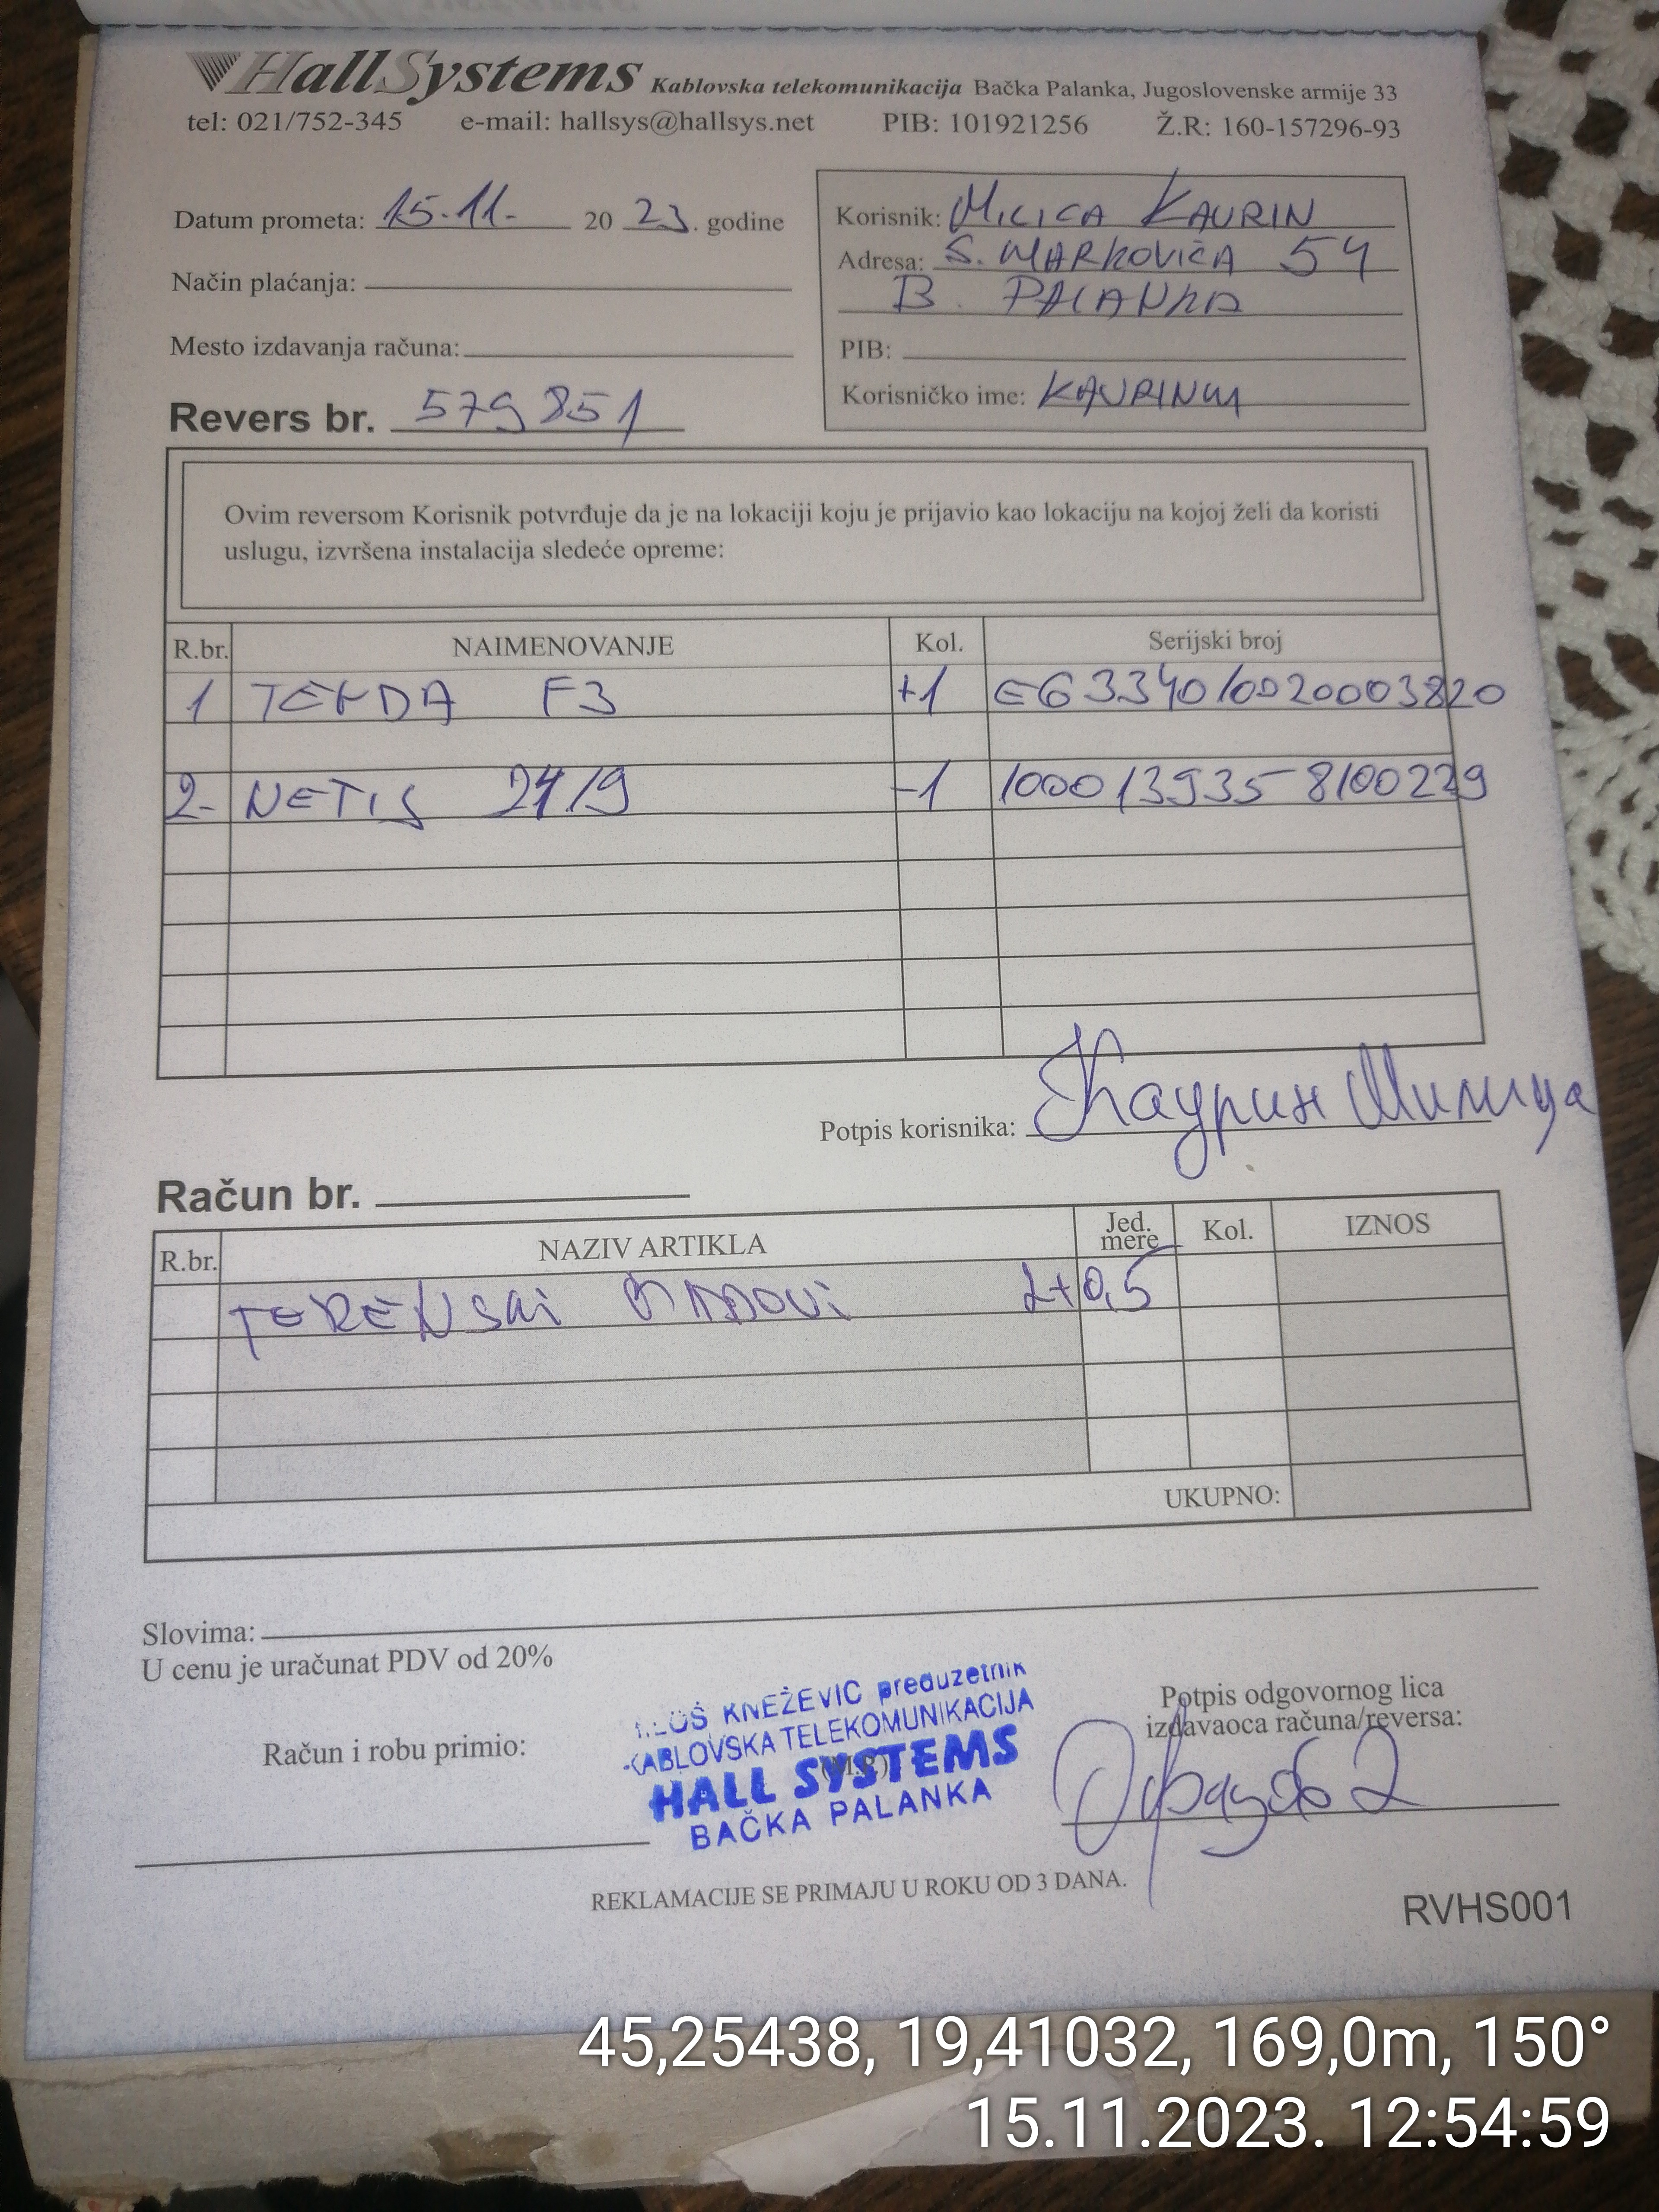 HallSystems Kablovska telekomunikacija Bačka Palanka, Jugoslovenske armije 33
tel: 021/752-345 e-mail: hallsys@hallsys.net PIB: 101921256 Ž.R: 160-157296-93
Datum prometa: 15.11. 20 23. godine
Način plaćanja:
Mesto izdavanja računa:
Revers br. 579851
Korisnik: MILICA KAURIN
Adresa: S. MARKOVIĆA 54
B. PALANKA
PIB:
Korisničko ime: KAURINM
Ovim reversom Korisnik potvrđuje da je na lokaciji koju je prijavio kao lokaciju na kojoj želi da koristi
uslugu, izvršena instalacija sledeće opreme:
R.br. NAIMENOVANJE Kol. Serijski broj
1 TENDA F3 +1 E6334010020003820
2- NETIS 2419 -1 1000139358100229
Potpis korisnika: Каурин Милица
Račun br.
R.br. NAZIV ARTIKLA Jed. mere Kol. IZNOS
TERENSKI RADOVI 2+0,5
UKUPNO:
Slovima:
U cenu je uračunat PDV od 20%
Račun i robu primio:
KNEŽEVIĆ preduzetnik
KABLOVSKA TELEKOMUNIKACIJA
HALL SYSTEMS
BAČKA PALANKA
Potpis odgovornog lica
izdavaoca računa/reversa:
REKLAMACIJE SE PRIMAJU U ROKU OD 3 DANA.
RVHS001
45,25438, 19,41032, 169,0m, 150°
15.11.2023. 12:54:59